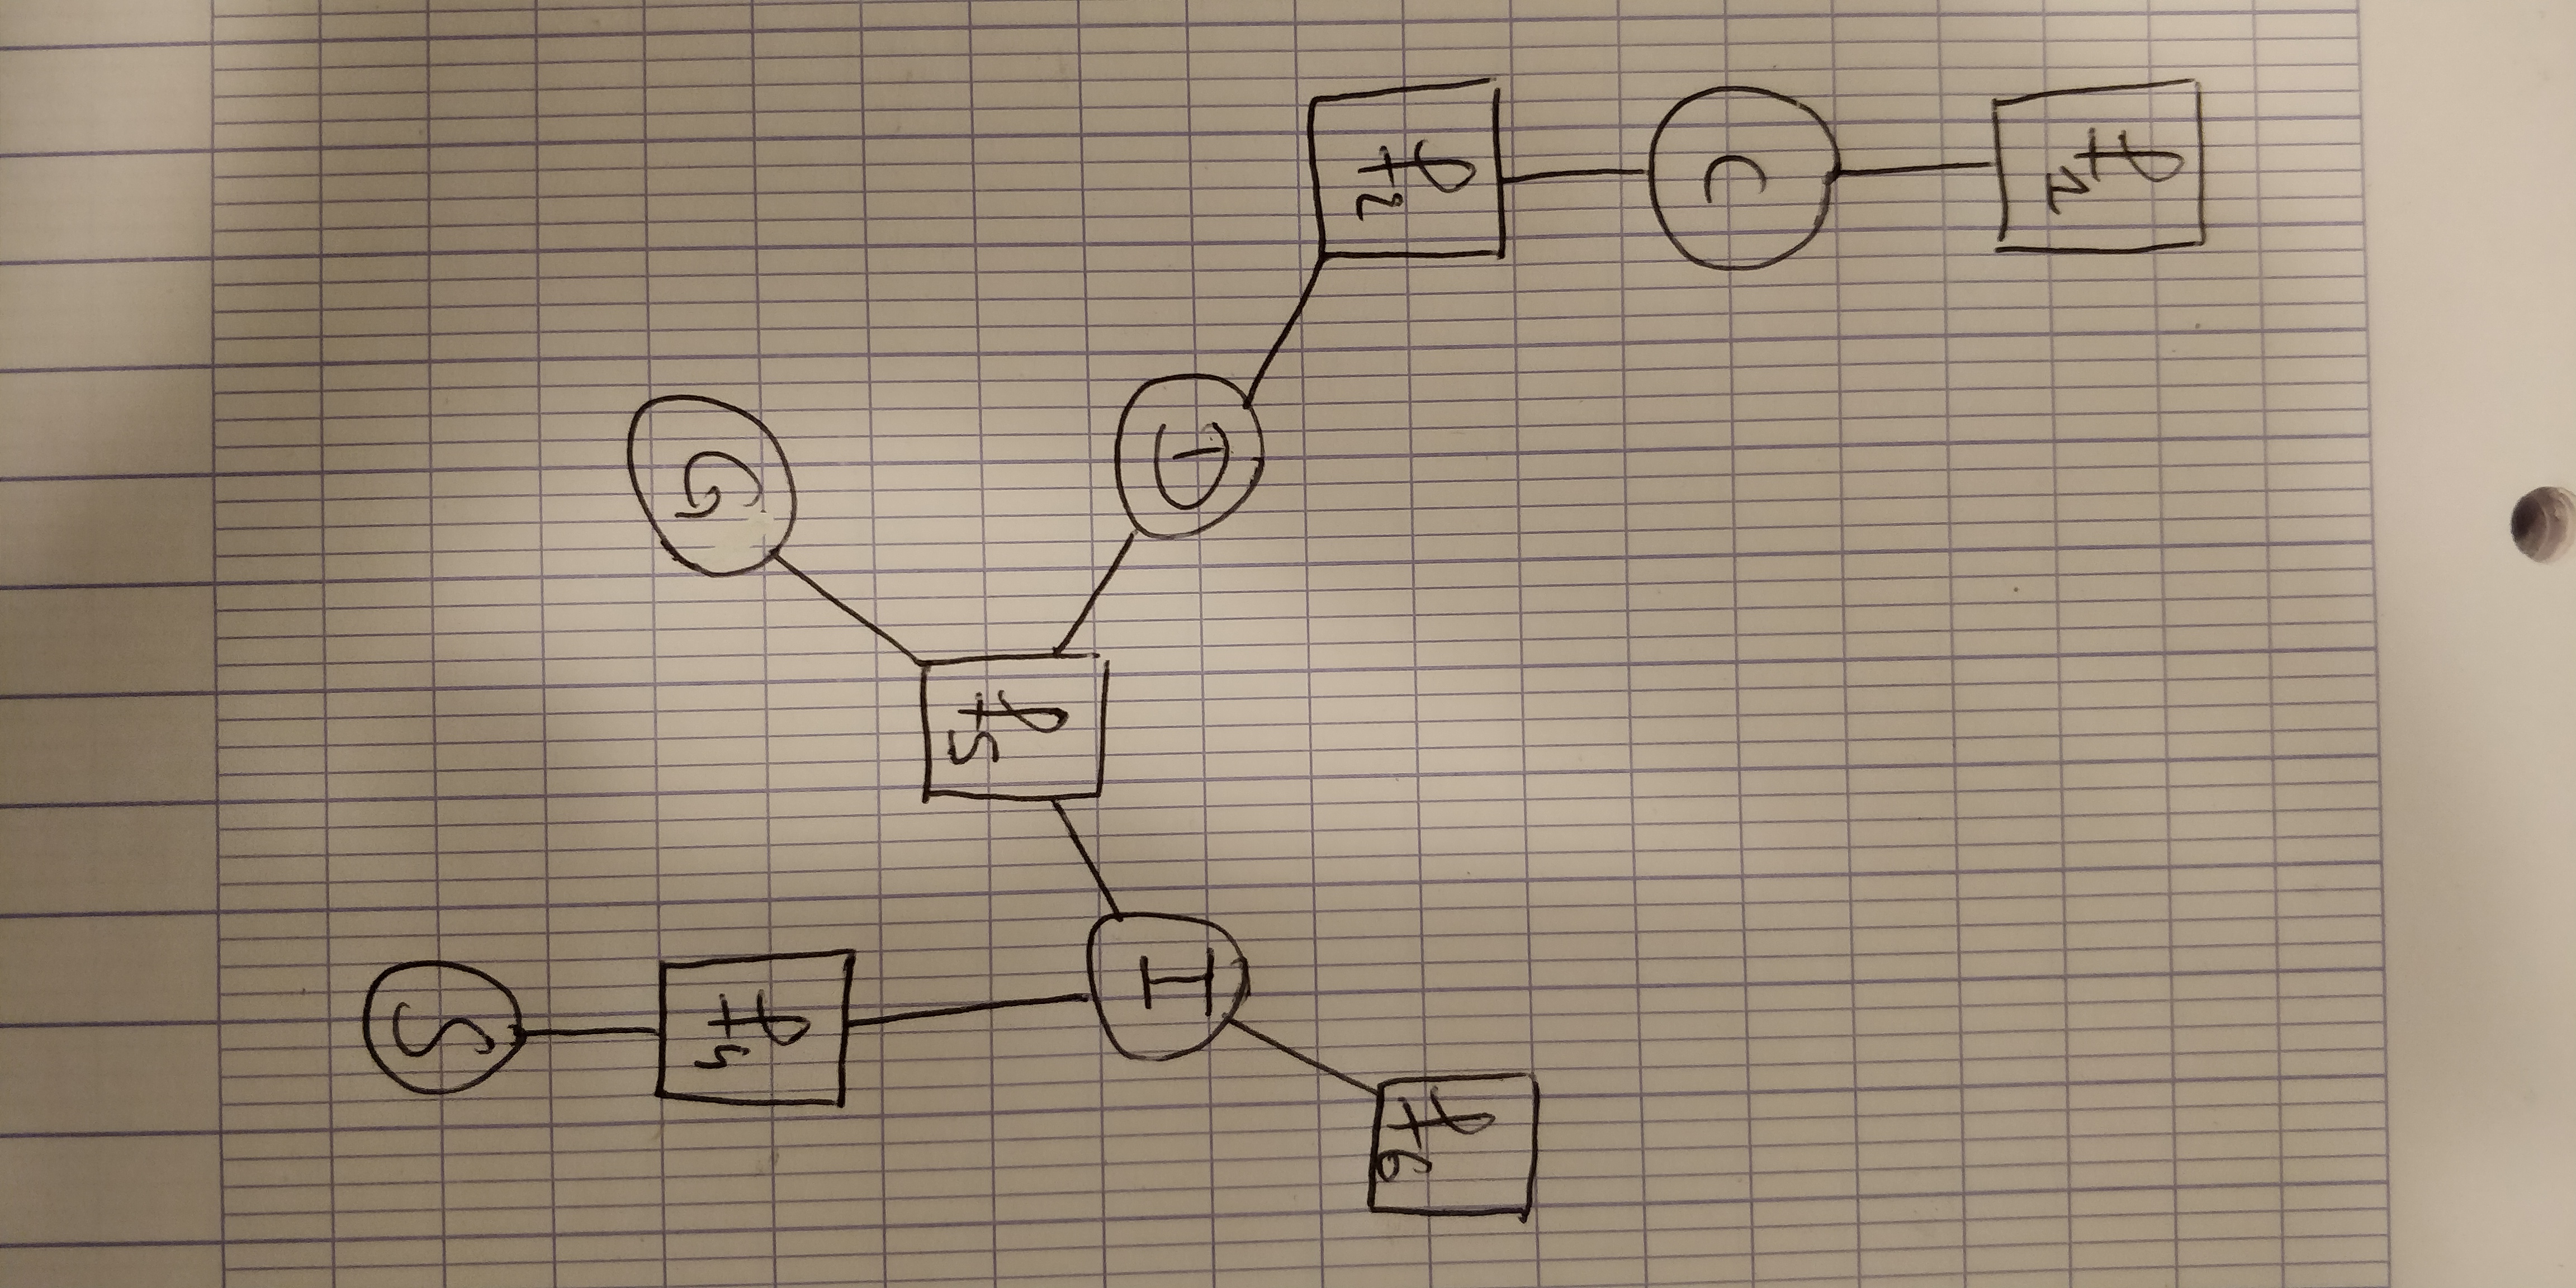 f1
C
f2
f6
D
I
f5
f4
G
S